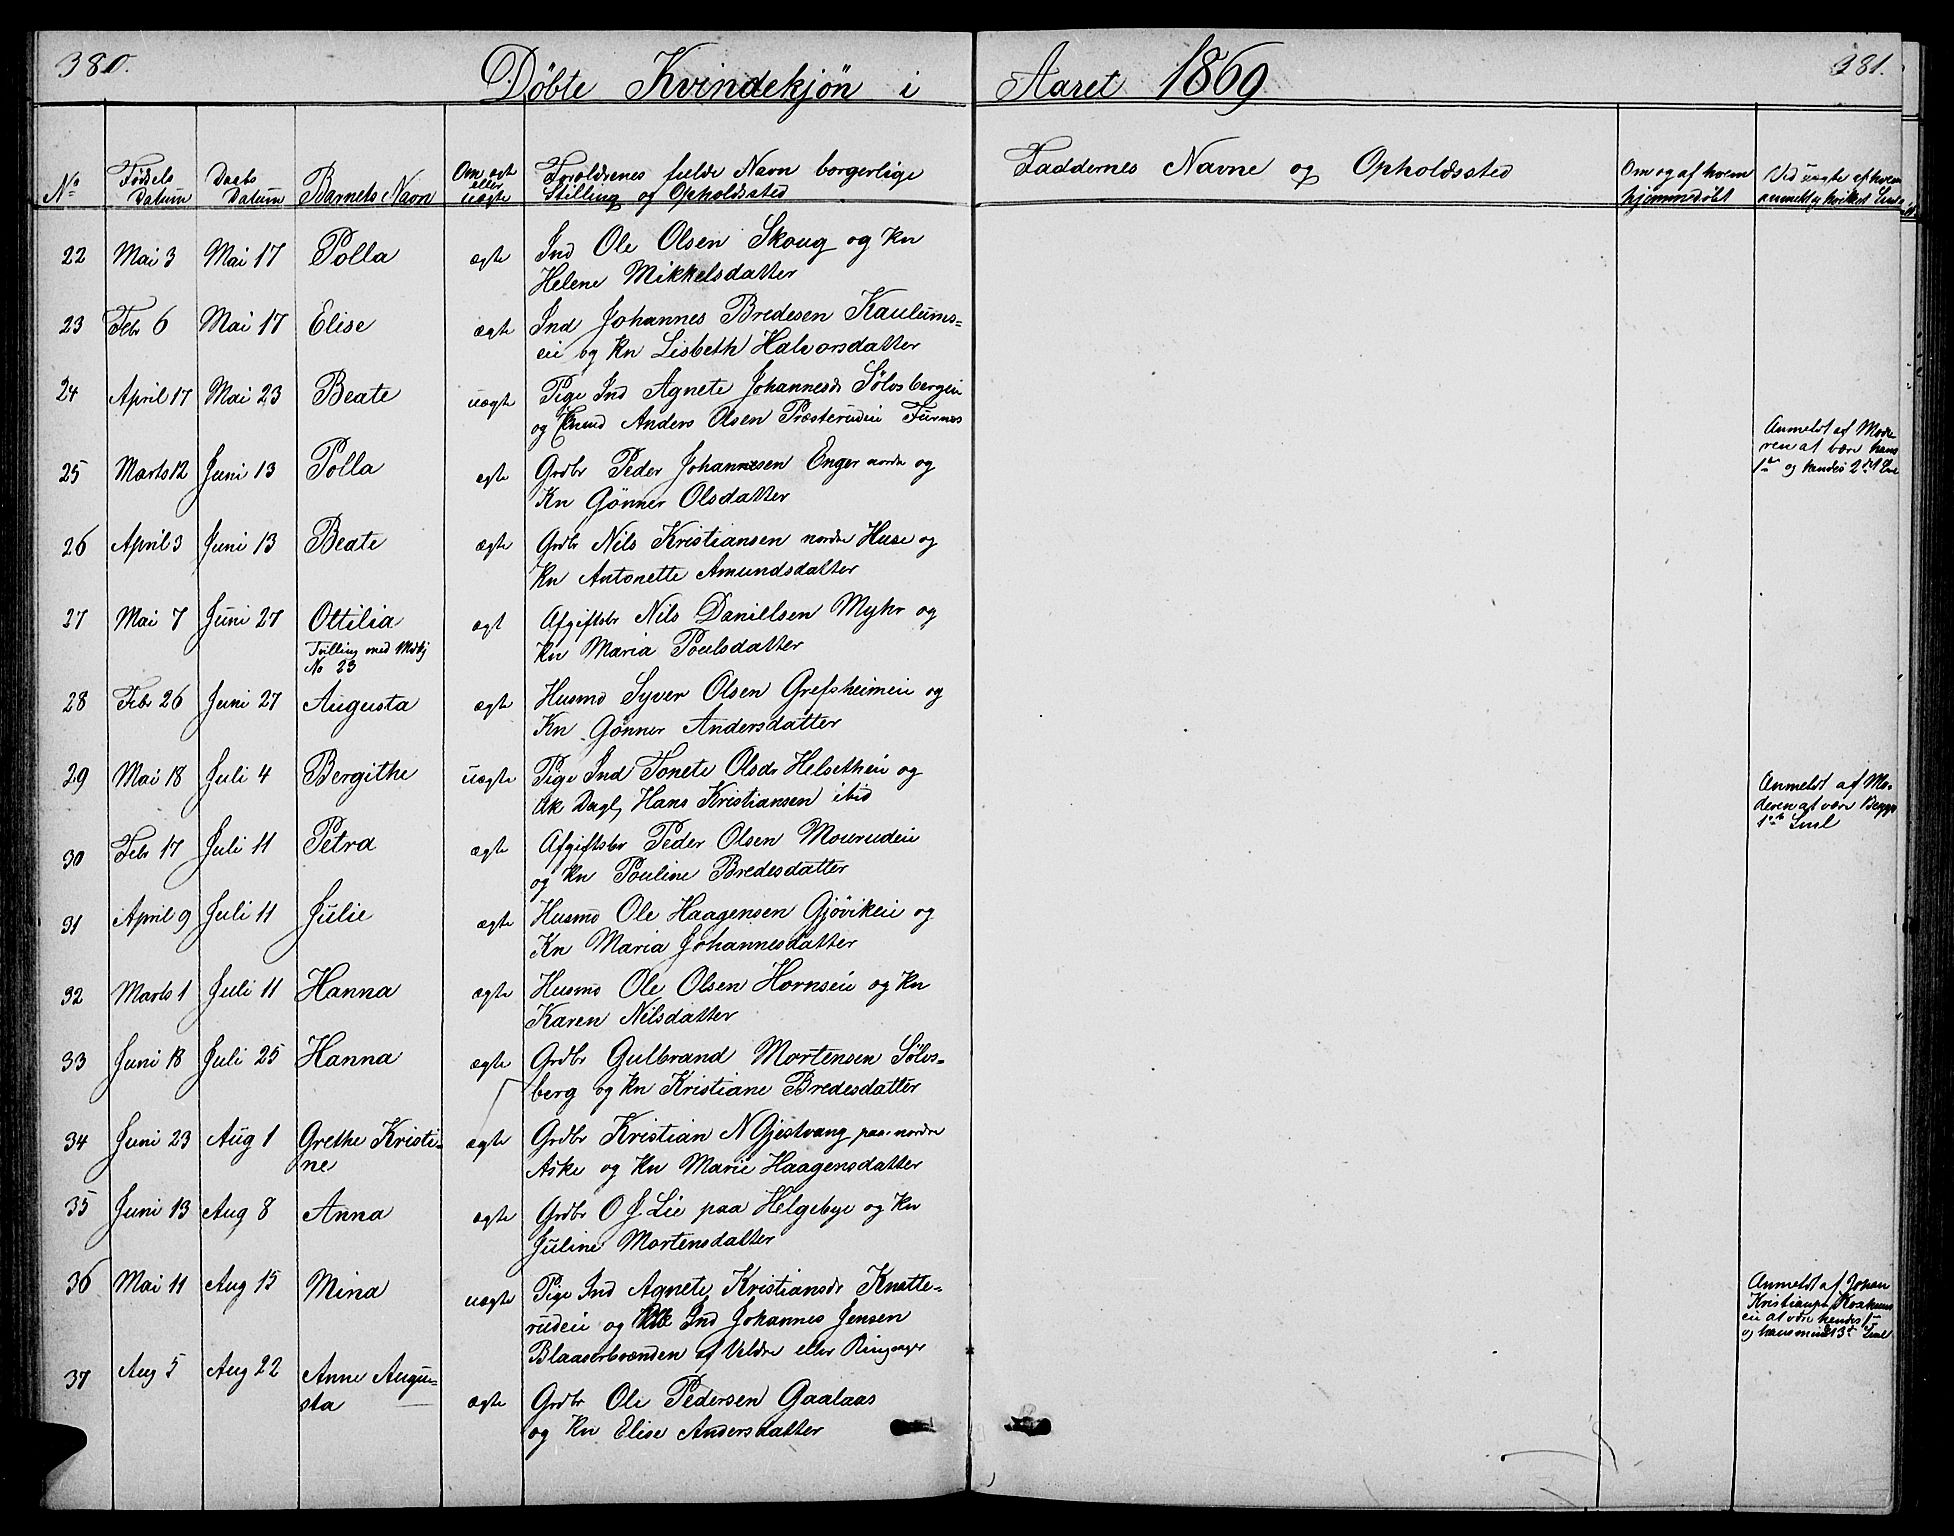 380.
Döbte Kvindekjön i Aaret 1869
381.
No Fødsels Datum Daabs Datum Barnets Navn Om ægt eller uægte Forældrenes fulde Navn borgerlige Stilling og Opholdssted Faddernes Navne og Opholdssted Om og af hvem hjemmedöbt Ved uægte af hvem anmeldt og hvilket
22 Mai 3 Mai 17 Polla ægte Ind Ole Olsen Skoug og Kn
Helene Mikkelsdatter
23 Febr 6 Mai 17 Elise ægte Ind Johannes Bredesen Kaulums=
eie og Kn Lisbeth Halvorsdatter
24 April 17 Mai 23 Beate uægte Pige Ind Agnete Johannesdr Sölvsbergeie
og Anders Olsen Præsterudeie Furnæs
Anmeldt af Mode
ren at være hans
1ste og hendes 2det
25 Marts 12 Juni 13 Polla egte Grdbr Peder Johannesen Enger nordre og
Kn Gönner Olsdatter
26 April 3 Juni 13 Beate ægte Grdbr Nils Kristiansen nordre Huse og
Kn Antonette Amundsdatter
27 Mai 7 Juni 27 Ottilia ægt Afgiftsbr Nils Danillsen Myhr og
Tvilling med Mdkj
No 23
Kn Maria Poulsdatter
28 Febr 26 Juni 27 Augusta ægte Husmd Syver Olsen Grefsheimeie og
Kn Gönner Andersdatter
29 Mai 18 Juli 4 Bergithe uægte Pige Ind Tonete Olsdr Helsetheie og
Uk Dagl Hans Kristiansen ibid
Anmeldt af Mo-
deren at være Begges
1ste
30 Febr 17 Juli 11 Petra ægte Afgiftsbr Peder Olsen Mourudeie
og Kn Pouline Bredesdatter
31 April 9 Juli 11 Julie ægte Husmd Ole Haagensen Gjövikeie og
Kn Maria Johannesdatter
32 Marts 1 Juli 11 Hanna ægte Husmd Ole Olsen Hornseie og Kn
Karen Nilsdatter
33 Juni 18 Juli 25 Hanna ægte Grdbr Gulbrand Mortensen Sölvs=
berg og Kn Kristiane Bredesdatter
34 Juni 23 Aug 1 Grethe Kristi=
ne ægte Grdbr Kristian N Gjestvang paa nordre
Aske og Kn Marie Haagensdatter
35 Juni 13 Aug 8 Anna ægte Grdbr O J Lie paa Helgebye og Kn
Juline Mortensdatter
36 Mai 11 Aug 15 Mina uægte Pige Ind Agnete Kristiansdr Knatte=
rudeie og Ind Johannes Jensen
Blaaserbrænden af Veldre eller Ringsager
Anmeldt af Johan
eie at være hendes 1ste
37 Aug 5 Aug 22 Anne Augu=
sta ægte Grdbr Ole Pedersen Gaalaas
og Kn Elise Andersdatter